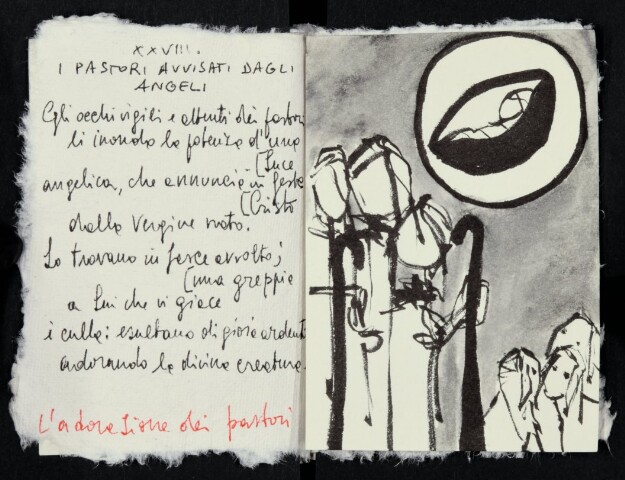 XXVIII.
I PASTORI AVVISATI DAGLI
ANGELI
Gli occhi vigili e attenti dei pastori
li inonda la potenza d'una
[luce
angelica, che annuncia in festa
[Cristo
dalla Vergine nato.
Lo trovano in fasce avvolto;
[una greppia
a Lui che vi giace
è culla: esultano di gioia ardenti
adorando la divina creatura.
L'adorazione dei pastori